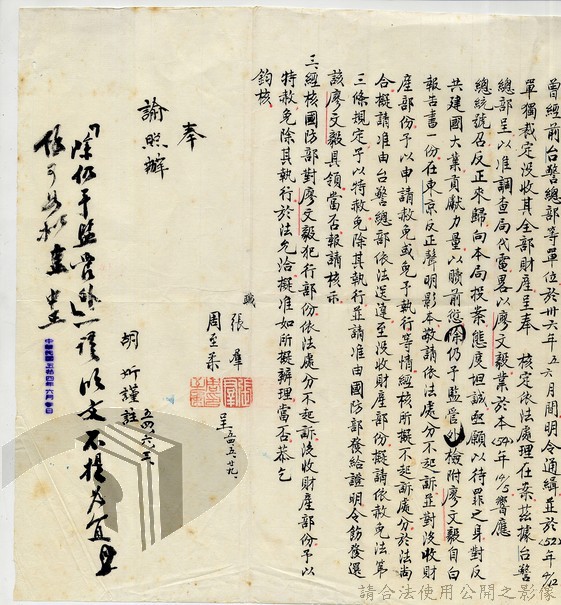 曾經前台警總部等單位於卅六年五六月間明令通緝並於(52)年
單獨裁定沒收其全部財產呈奉 核定依法處理在案茲據台警
總部呈以准調查局代電畧以廖文毅業於本(54)年 響應
總統號召反正來歸向本局投案態度坦誠亟願以待罪之身對反
共建國大業貢獻力量以贖前愆除仍予監管外檢附廖文毅自白
報告書一份在東京反正聲明影本敬請依法處分不起訴並對沒收財
產部份予以申請赦免或免予執行等情經核所擬不起訴處分於法尚
合擬請准由台警總部依法逕為至沒收財產部份擬請依赦免法第
三條規定予以特赦免除其執行並請准由國防部發給證明令飭發還
該廖文毅具領當否報請核示
三、經核國防部對廖文毅犯行部份依法處分不起訴沒收財產部份予以
特赦免除其執行於法允洽擬准如所擬辦理當否恭乞
鈞核
職 張羣
周至柔 呈 五四、五、廿九、
奉
諭照辦
「除仍予監管外」一語以文不提為宜
胡炘謹註 五四、六、五
中華民國五拾四年六月
請合法使用公開之影像